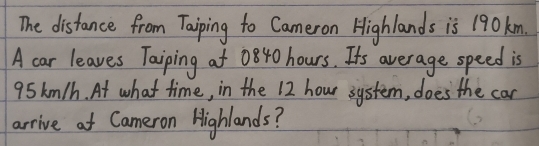 The distance from Taiping to Cameron Highlands is 190km.
A car leaves Taiping at 0840 hours. Its average speed is
95km/h. At what time, in the 12 hour system, does the car
arrive at Cameron Highlands?